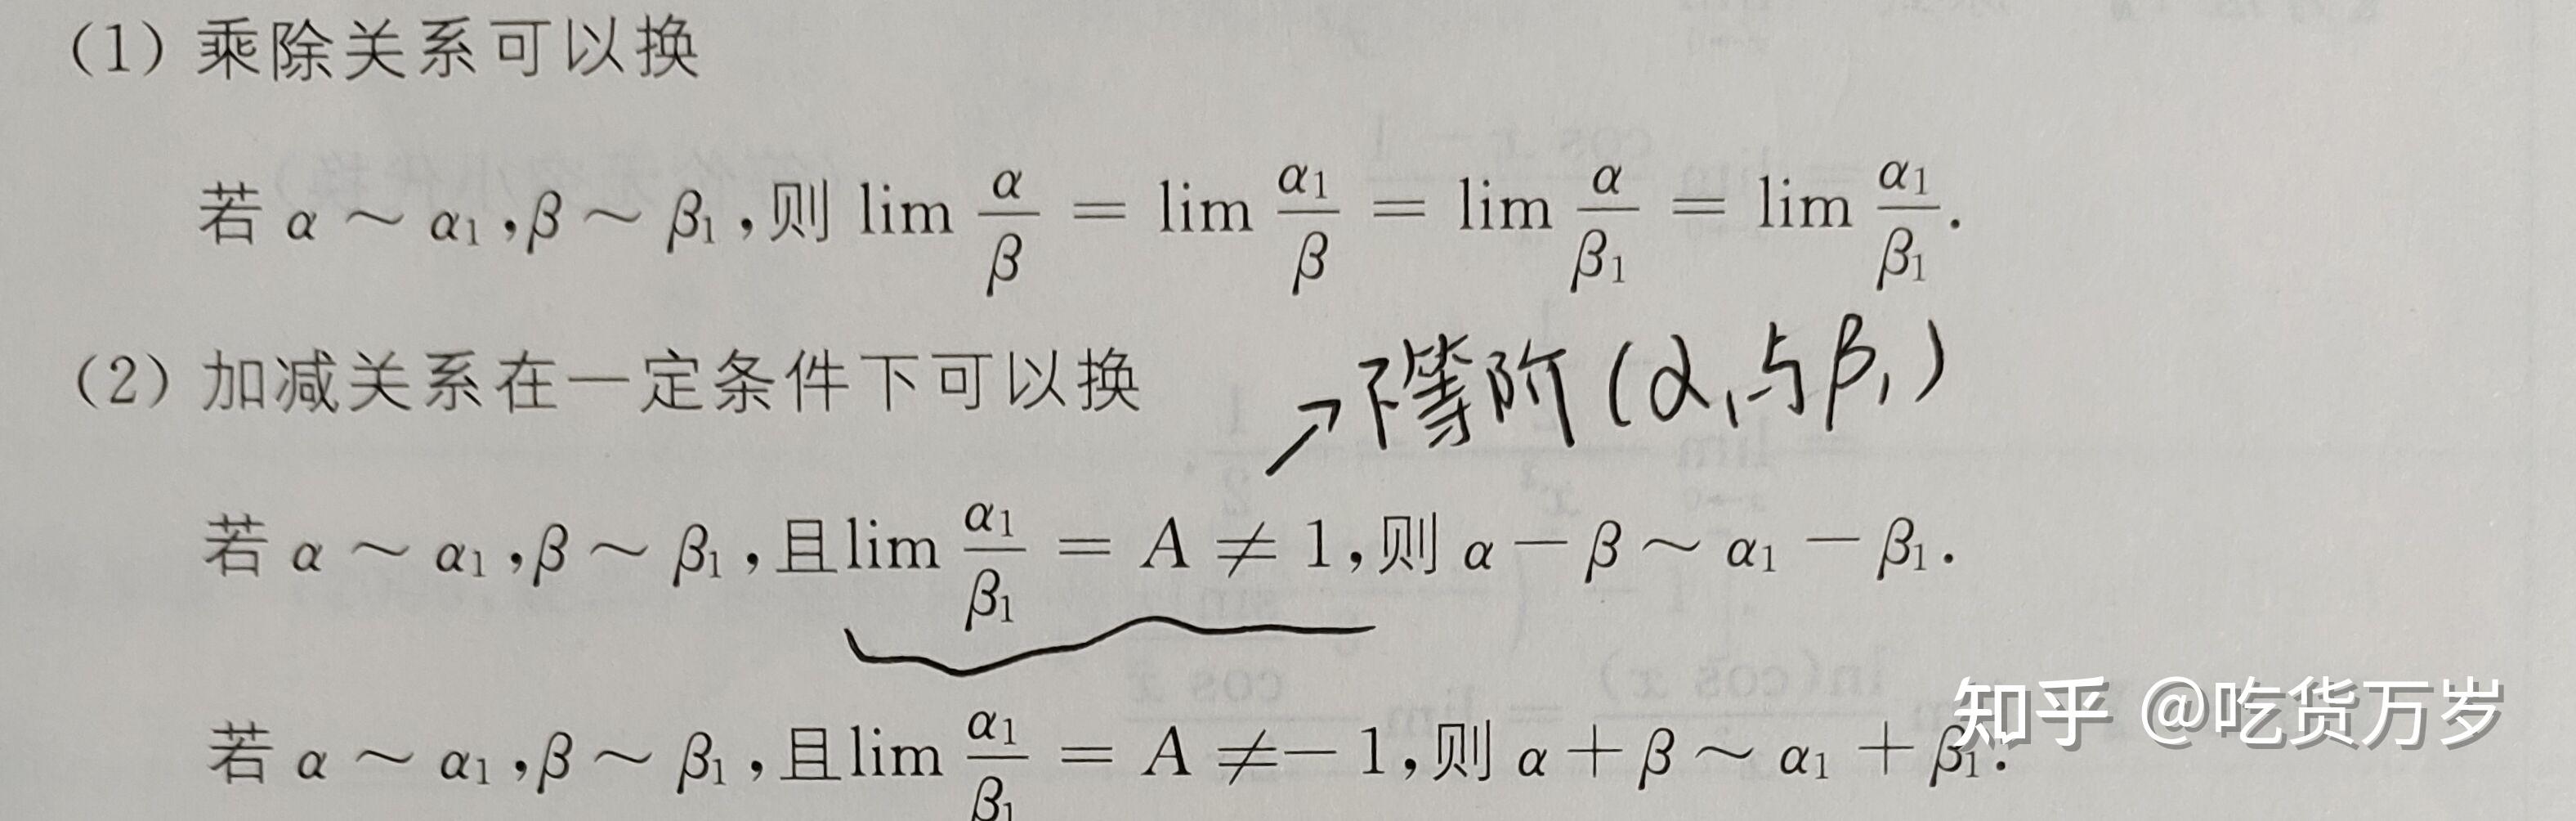 (1) 乘除关系可以换
若 α ~ α₁,β ~ β₁,则 lim α/β = lim α₁/β = lim α/β₁ = lim α₁/β₁.
(2) 加减关系在一定条件下可以换
等阶 (α₁与β₁)
若 α ~ α₁,β ~ β₁,且lim α₁/β₁ = A ≠ 1,则 α − β ~ α₁ − β₁.
若 α ~ α₁,β ~ β₁,且lim α₁/β₁ = A ≠ −1,则 α + β ~ α₁ + β₁.
知乎 @吃货万岁